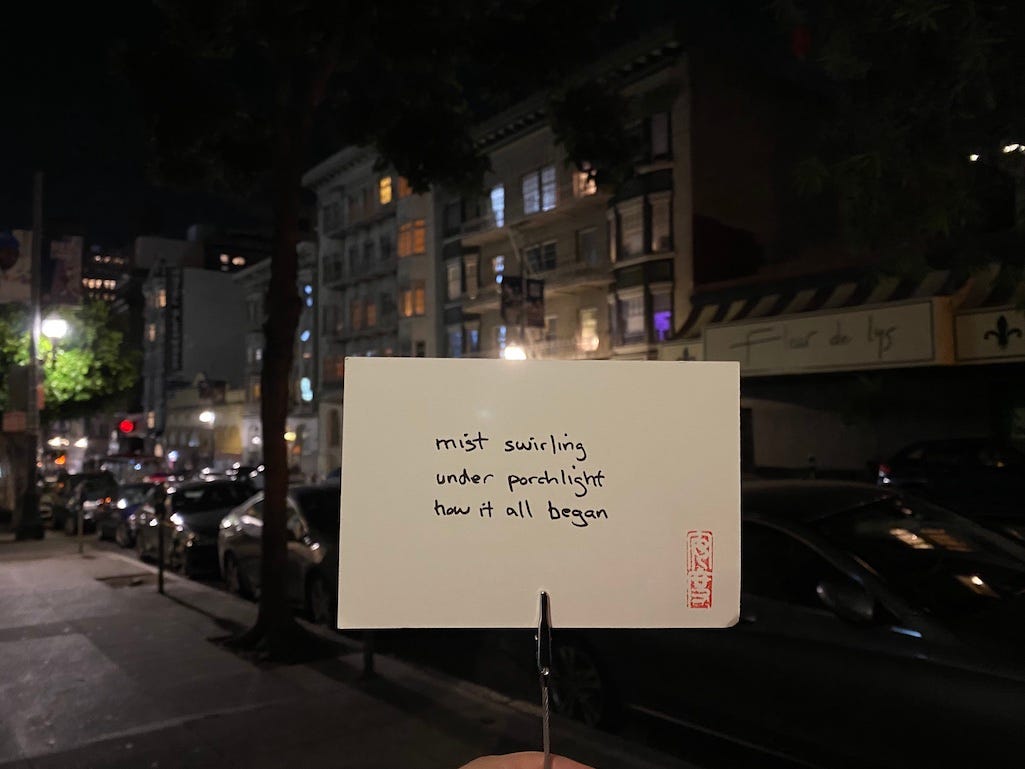 Fleur de lys
mist swirling
under porchlight
how it all began